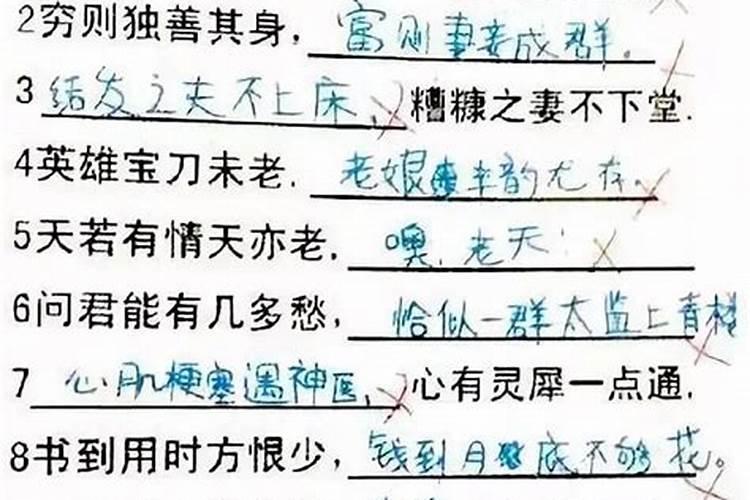 2穷则独善其身，富则妻妾成群。
3结发之夫不上床，糟糠之妻不下堂.
4英雄宝刀未老.老娘丰韵尤存。
5天若有情天亦老.噢，老天！
6问君能有几多愁，恰似一群太监上青楼
7心肌梗塞遇神医，心有灵犀一点通.
8书到用时方恨少，钱到月底不够花。